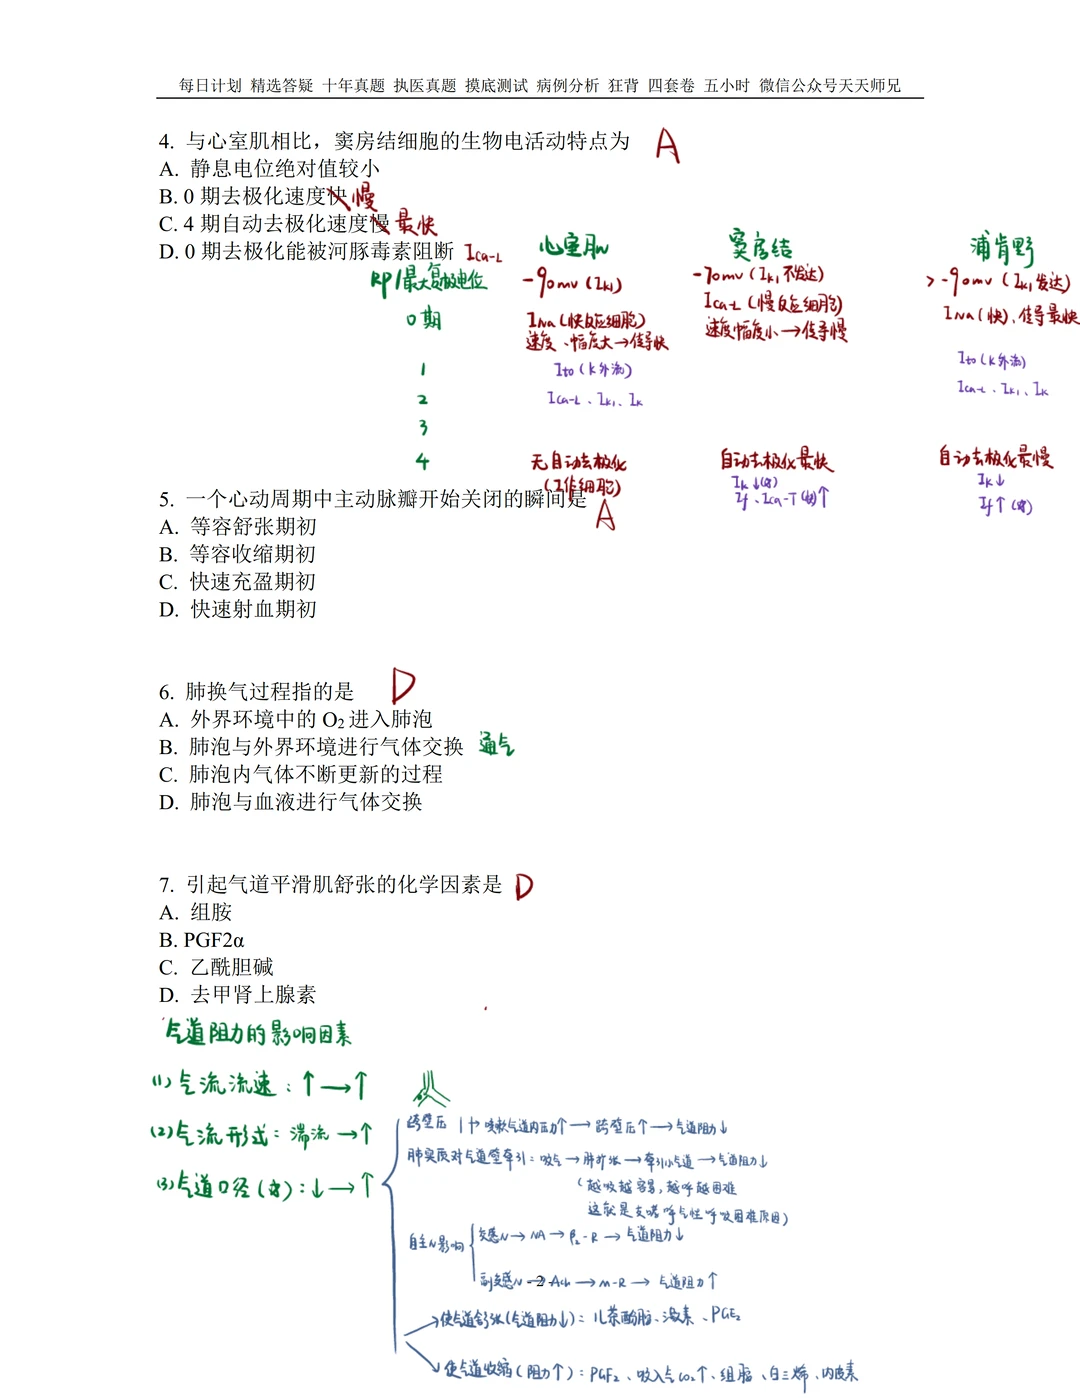 每日计划 精选答疑 十年真题 执医真题 摸底测试 病例分析 狂背 四套卷 五小时 微信公众号天天师兄
4. 与心室肌相比，窦房结细胞的生物电活动特点为 A
A. 静息电位绝对值较小
B. 0 期去极化速度快 慢
C. 4 期自动去极化速度慢 最快
D. 0 期去极化能被河豚毒素阻断 ICa-L
心室肌 窦房结 浦肯野
RP/最大复极电位 -90mv (Ik1) -70mv (Ik1不发达) > -90mv (Ik1发达)
0期 INa (快反应细胞) ICa-L (慢反应细胞) INa (快)、传导最快
速度、幅度大→传导快 速度幅度小→传导慢
1 Ito (K外流) Ito (K外流)
2 ICa-L、Ik1、Ik ICa-L、Ik1、Ik
3
4 无自动去极化 自动去极化最快 自动去极化最慢
(工作细胞) Ik↓(主) Ik↓
If、ICa-T ↑ If↑(主)
5. 一个心动周期中主动脉瓣开始关闭的瞬间是 A
A. 等容舒张期初
B. 等容收缩期初
C. 快速充盈期初
D. 快速射血期初
6. 肺换气过程指的是 D
A. 外界环境中的 O2 进入肺泡
B. 肺泡与外界环境进行气体交换 通气
C. 肺泡内气体不断更新的过程
D. 肺泡与血液进行气体交换
7. 引起气道平滑肌舒张的化学因素是 D
A. 组胺
B. PGF2α
C. 乙酰胆碱
D. 去甲肾上腺素
气道阻力的影响因素
(1) 气流流速：↑→↑
(2) 气流形式：湍流→↑
(3) 气道口径(主)：↓→↑
跨壁压 咳嗽气道内压力↑→跨壁压↑→气道阻力↓
肺实质对气道壁牵引：吸气→肺扩张→牵引小气道→气道阻力↓
(越吸越容易，越呼越困难
这就是支哮呼气性呼吸困难原因)
自主N影响 交感N→NA→β2-R→气道阻力↓
副交感N→Ach→M-R→气道阻力↑
使气道舒张(气道阻力↓)：儿茶酚胺、激素、PGE2
使气道收缩(阻力↑)：PGF2、吸入气CO2↑、组胺、白三烯、内皮素
- 2 -